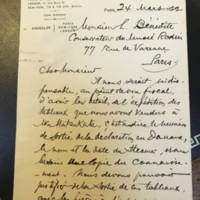 Paris, 24 Mars 22
Monsieur L. Bénédite
Conservateur du Musée Rodin
77 Rue de Varenne
Paris
BRUXELLES
PARIS
NEW-YORK
Cher Monsieur
Il nous serait indis-
pensable, au point de vue fiscal,
d'avoir les détails de l'expédition des
tableaux que nous avons vendus à
Mr Matsukata, c'est à dire le numéro
de sortie de la déclaration en Douane
le nom et la date du Steamer, ou
bien une copie du connaisse-
ment. Nous devons pouvoir
justifier de la sortie de ces tableaux